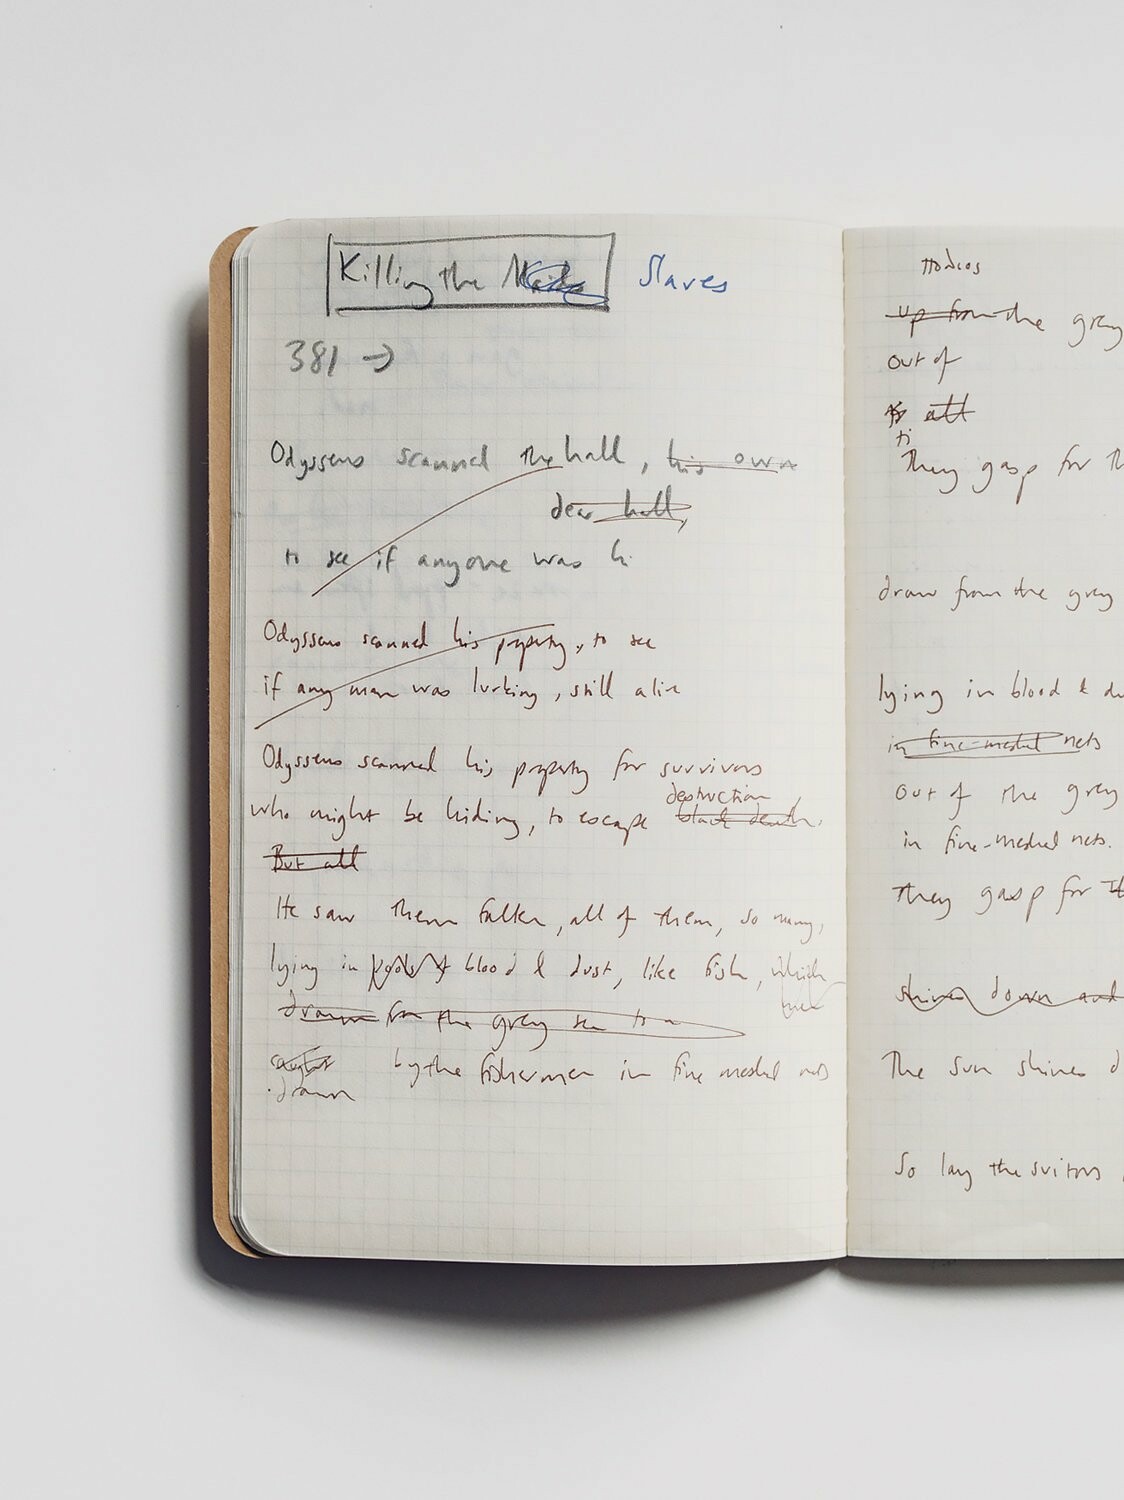 Killing the Maids Slaves
381 →
Odysseus scanned the hall, his own
dear hall,
to see if anyone was h
Odysseus scanned his property, to see
if any man was lurking, still alive
Odysseus scanned his property for survivors
destruction
who might be hiding, to escape black death.
But all
He saw them fallen, all of them, so many,
lying in pools of blood & dust, like fish, which
drawn from the grey sea to a
caught by the fishermen in fine meshed nets
drawn
πολιος
up from the grey
out of
all
to
They gasp for th
draw from the grey
lying in blood & du
in fine-meshed nets
out of the grey
in fine-meshed nets.
They gasp for
shines down and
The sun shines d
So lay the suitors